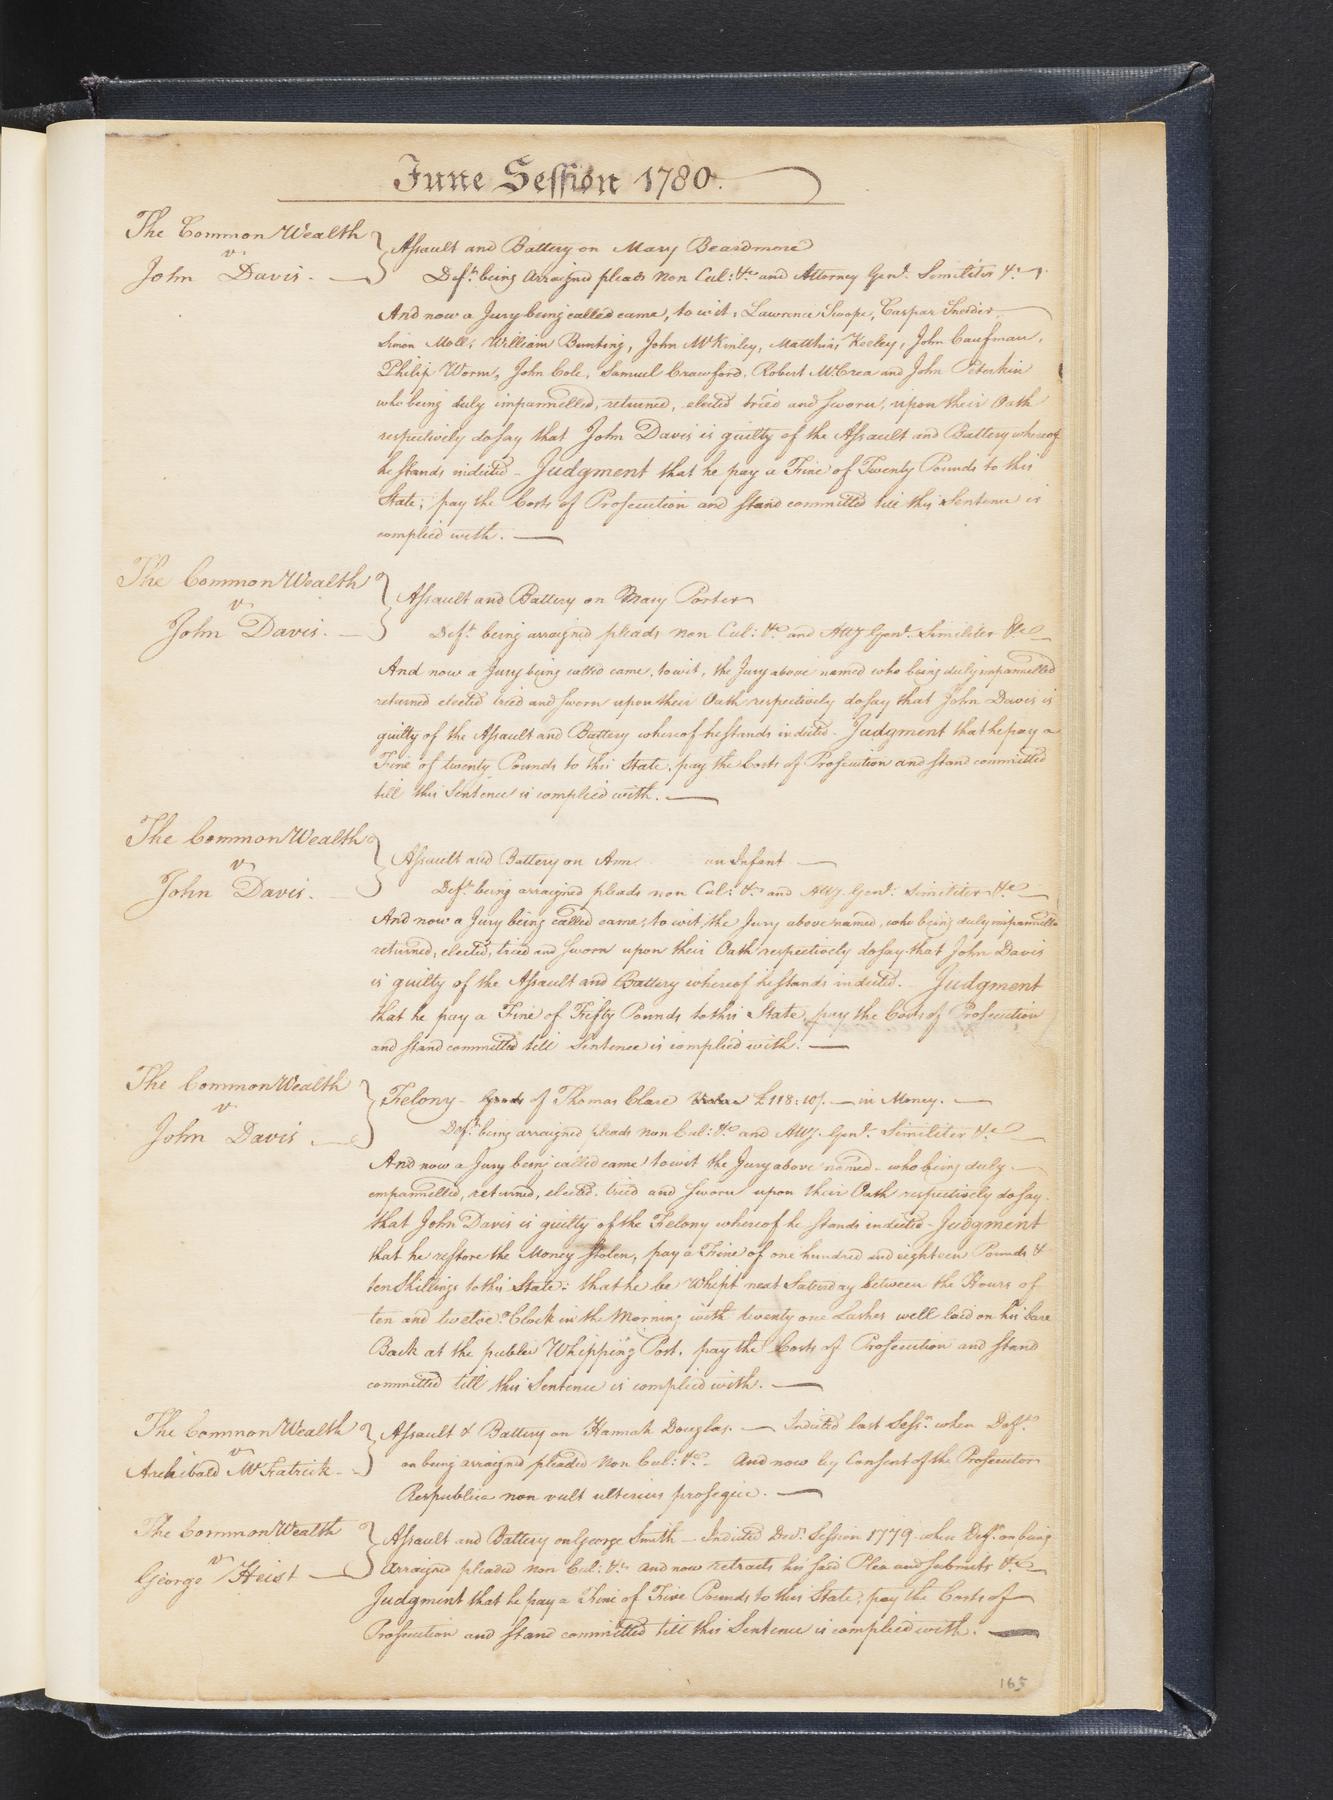 June Session 1780.
The Common Wealth
v
John Davis.
Assault and Battery on Mary Beardmore
Deft. being arraigned pleads Non Cul: &c and Attorney Genl. Similiter &c
And now a Jury being called came, to wit, Lawrence Swope, Caspar Sneider
Simon Moll, William Bunting, John McKinley, Matthias Keeley, John Caufman,
Philip Worm, John Cole, Samuel Crawford, Robert McCrea and John Peterkin
who being duly impannelled, returned, elected tried and sworn, upon their Oath
respectively do say that John Davis is guilty of the Assault and Battery whereof
he stands indicted - Judgment that he pay a Fine of Twenty Pounds to this
State, pay the Costs of Prosecution and stand committed till this Sentence is
complied with.
The Common Wealth
v
John Davis.
Assault and Battery on Mary Porter
Deft. being arraigned pleads non Cul: &c and Atty Genl. Similiter &c
And now a Jury being called came, to wit, the Jury above named who being duly impannelled
returned elected tried and sworn upon their Oath respectively do say that John Davis is
guilty of the Assault and Battery whereof he stands indicted - Judgment that he pay a
Fine of twenty Pounds to this State, pay the Costs of Prosecution and stand committed
till this Sentence is complied with.
The Common Wealth
v
John Davis.
Assault and Battery on Ann an Infant
Deft. being arraigned pleads non Cul: &c and Atty Genl. Similiter &c
And now a Jury being called came, to wit, the Jury above named, who being duly impannelled
returned, elected, tried and sworn upon their Oath respectively do say that John Davis
is guilty of the Assault and Battery whereof he stands indicted. Judgment
that he pay a Fine of Fifty Pounds to this State, pay the Costs of Prosecution
and stand committed till Sentence is complied with.
The Common Wealth
v
John Davis
Felony - Goods of Thomas Clare £118:10/. in Money.
Deft. being arraigned pleads non Cul: &c and Atty. Genl. Similiter &c
And now a Jury being called came to wit the Jury above named - who being duly
empannelled, returned, elected, tried and sworn upon their Oath respectively do say
that John Davis is guilty of the Felony whereof he stands indicted - Judgment
that he restore the Money stolen, pay a Fine of one hundred and eighteen Pounds &
ten Shillings to this State: that he be Whipt next Saturday between the Hours of
ten and twelve o'Clock in the Morning with twenty one Lashes well laid on his bare
Back at the public Whipping Post, pay the Costs of Prosecution and stand
committed till this Sentence is complied with.
The Common Wealth
v
Archibald McFatrick
Assault & Battery on Hannah Douglas. Indicted last Sessn. when Deft.
on being arraigned pleaded Non Cul: &c - And now by Consent of the Prosecutor
Respublica non vult ulterius prosequi.
The Common Wealth
v
George Heist
Assault and Battery on George Smith - Indicted Decr. Session 1779 when Deft. on being
arraigned pleaded non Cul: &c and now retracts his said Plea and submits &c
Judgment that he pay a Fine of Five Pounds to this State, pay the Costs of
Prosecution and stand committed till this Sentence is complied with.
165